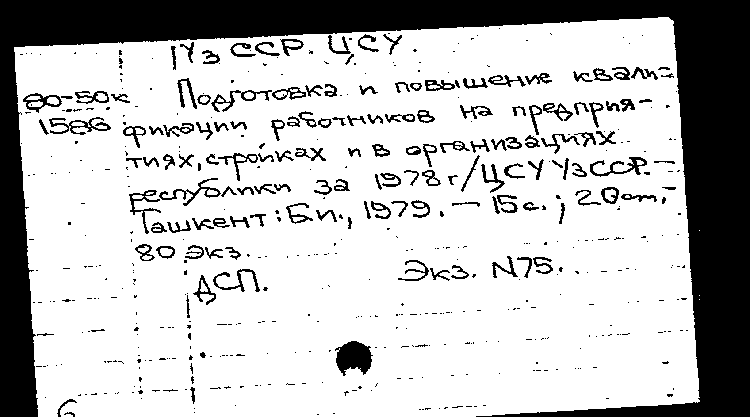 УзССР. ЦСУ.
80-50к Подготовка и повышение квали=
1586 фикации работников на предприя-
тиях, стройках и в организациях
республики за 1978г/ЦСУ УзССР.-
Ташкент: Б.и., 1979. - 15с.; 20см,-
80 экз.
ДСП. Экз. N75.
6